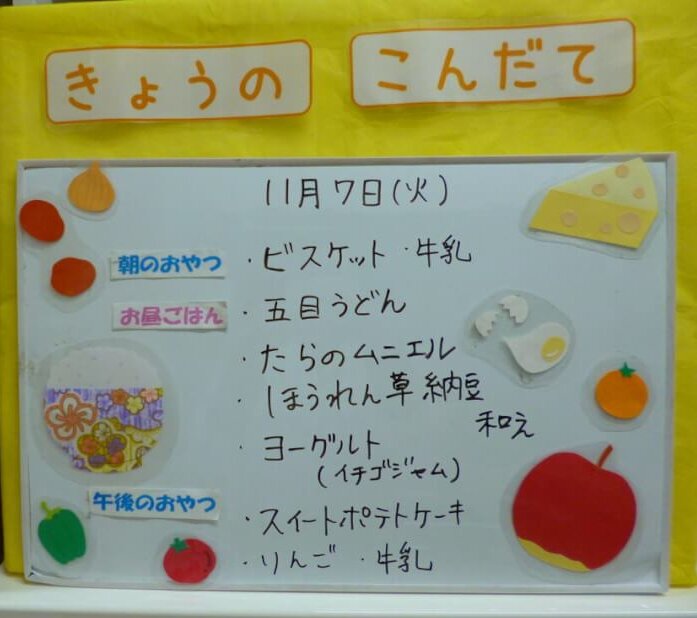 きょうの こんだて
11月7日(火)
朝のおやつ ・ビスケット ・牛乳
お昼ごはん ・五目うどん
・たらのムニエル
・ほうれん草納豆
和え
・ヨーグルト
(イチゴジャム)
午後のおやつ ・スイートポテトケーキ
・りんご ・牛乳